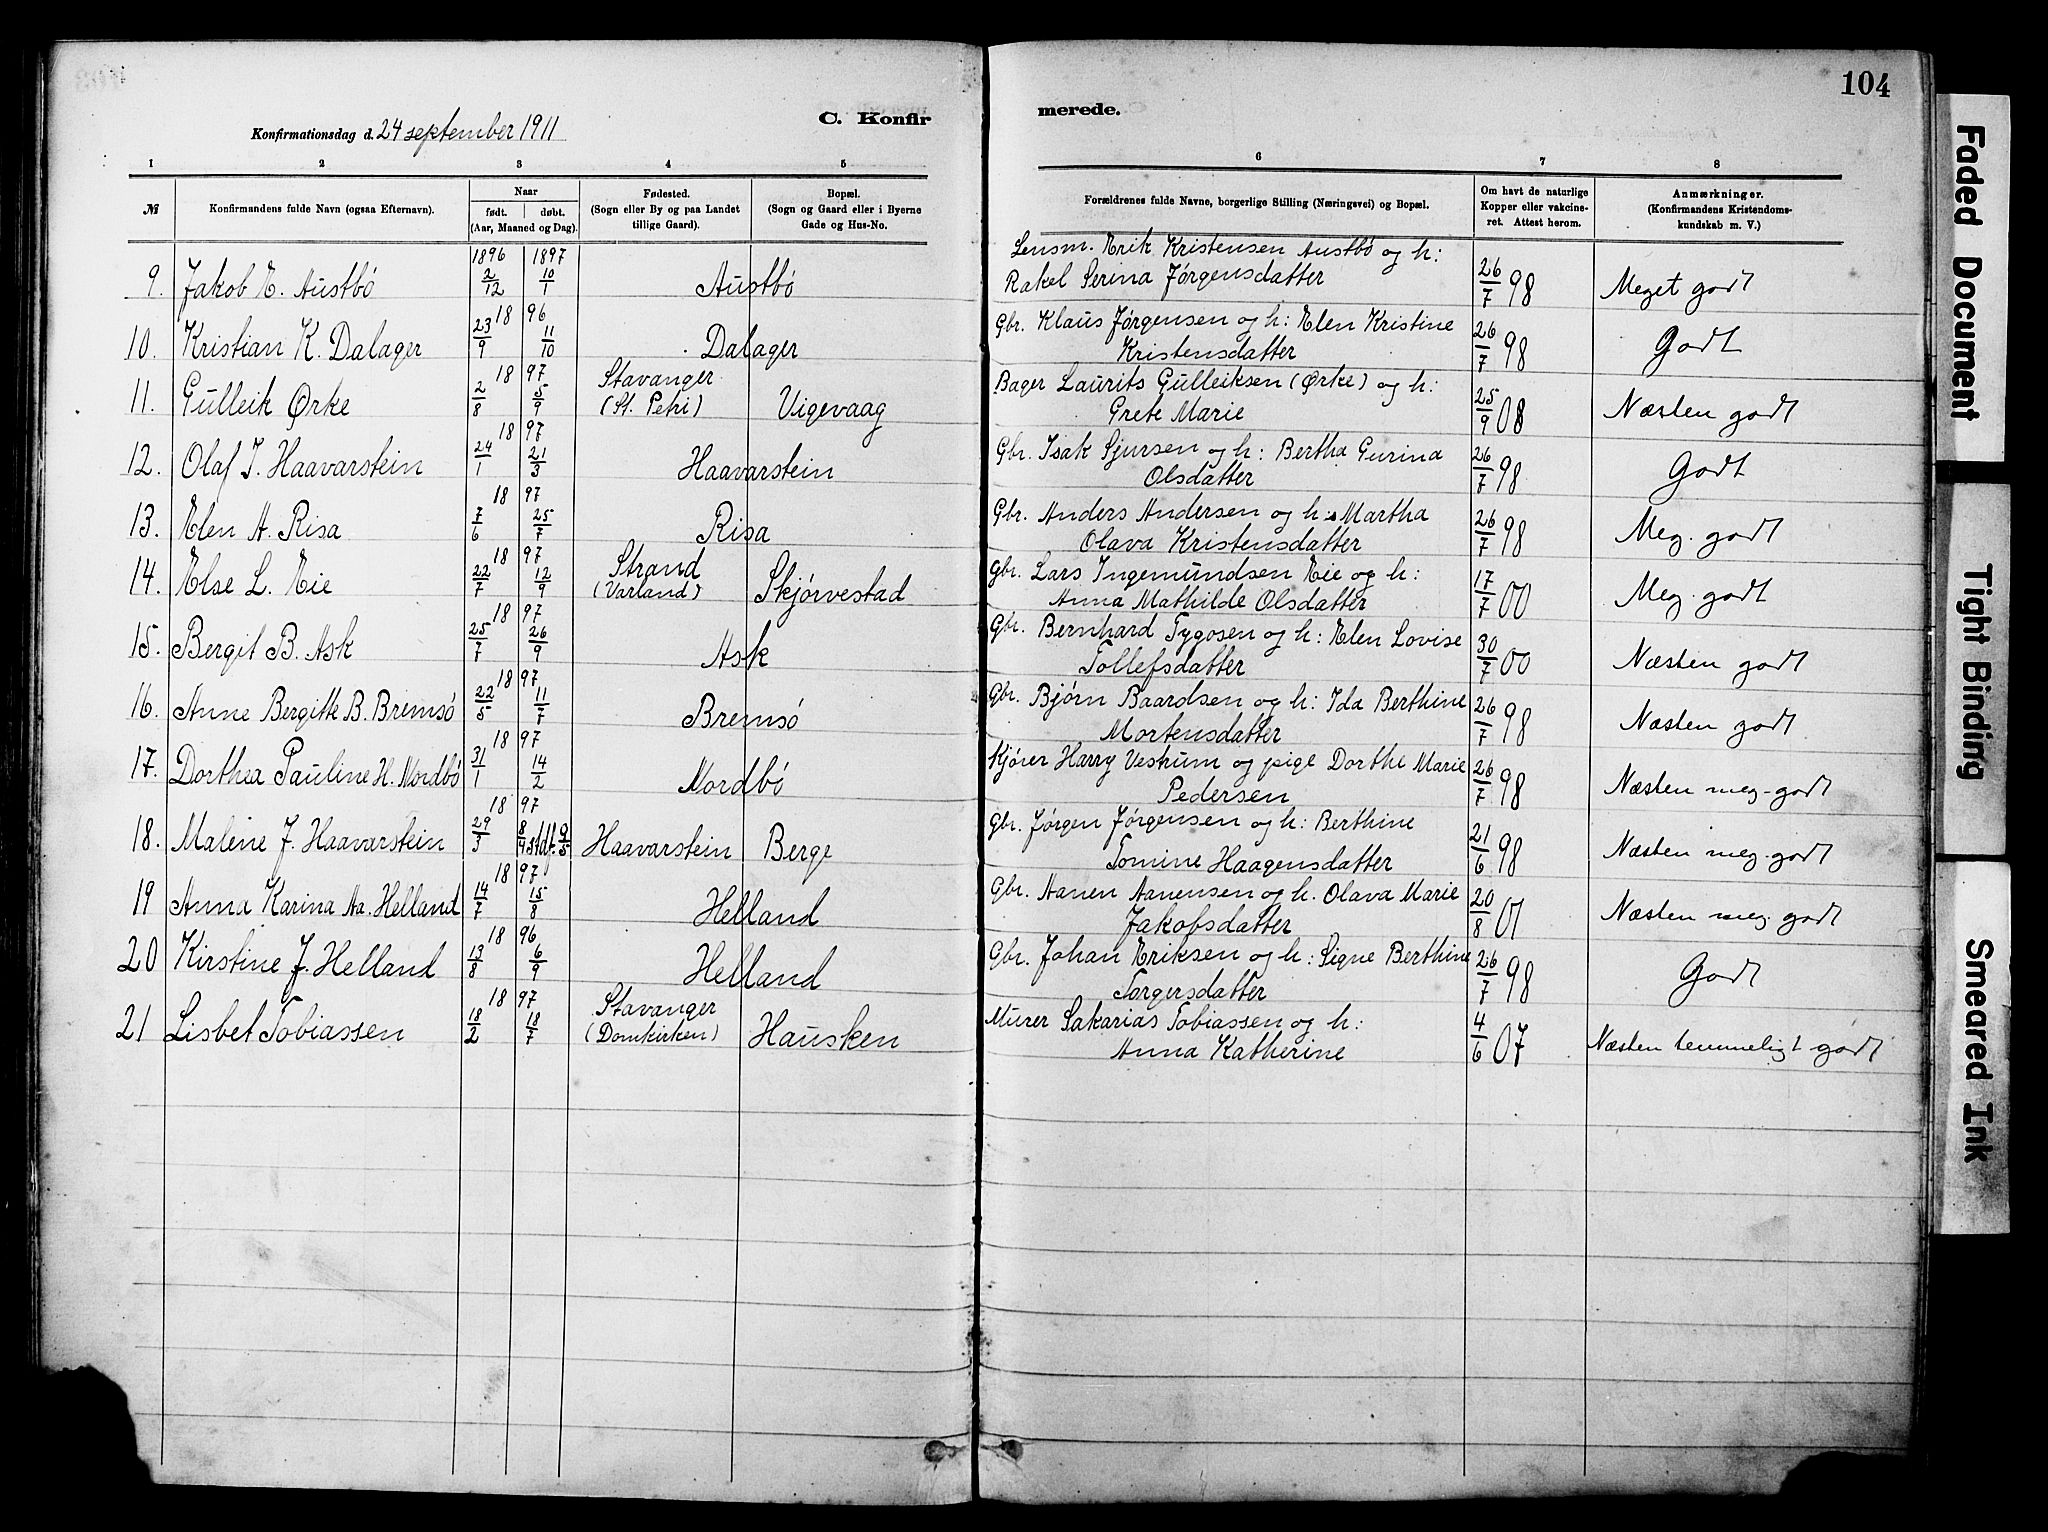 104
Konfirmationsdag d. 24 september 1911
C. Konfirmerede.
1 2 3 4 5 6 7 8
№ Konfirmandens fulde Navn (ogsaa Efternavn). Naar født. døbt. (Aar, Maaned og Dag). Fødested. (Sogn eller By og paa Landet tillige Gaard). Bopæl. (Sogn og Gaard eller i Byerne Gade og Hus-No. Forældrenes fulde Navne, borgerlige Stilling (Næringsvei) og Bopæl. Om havt de naturlige Kopper eller vakcineret. Attest herom. Anmærkninger. (Konfirmandens Kristendomskundskab m. V.)
9. Jakob E. Austbö 1896 2/12 1897 10/1 Austbö Lensm. Erik Kristensen Austbö og h: Rakel Serina Jörgensdatter 26/7 98 Meget godt
10. Kristian K. Dalager 1896 23/9 11/10 Dalager Gbr. Klaus Jörgensen og h: Elen Kristine Kristensdatter 26/7 98 Godt
11. Gulleik Ørke 1897 2/8 5/9 Stavanger (St. Petri) Vigevaag Bager Laurits Gulleiksen (Ørke) og h: Grete Marie 25/9 08 Næsten godt
12. Olaf I. Haavarstein 1897 24/1 21/3 Haavarstein Gbr. Isak Sjursen og h: Bertha Gurina Olsdatter 26/7 98 Godt
13. Elen A. Risa 1897 7/6 25/7 Risa Gbr. Anders Andersen og h: Martha Olava Kristensdatter 26/7 98 Meg. godt
14. Else L. Eie 1897 22/7 12/9 Strand (Varland) Skjörvestad Gbr. Lars Ingemundsen Eie og h: Anna Mathilde Olsdatter 17/7 00 Meg. godt
15. Bergit B. Ask 1897 25/7 26/9 Ask Gbr. Bernhard Tygosen og h: Elen Lovise Tollefsdatter 30/7 00 Næsten godt
16. Anne Bergitte B. Bremsö 1897 22/5 11/7 Bremsö Gbr. Bjørn Baardsen og h: Ida Berthine Mortensdatter 26/7 98 Næsten godt
17. Dorthea Pauline H. Nordbö 1897 31/1 14/2 Nordbö Kjörer Harry Vestrum og pige Dorthe Marie Pedersen 26/7 98 Næsten meg. godt
18. Malene J. Haavarstein 1897 29/3 8/4 stdf. 9/5 Haavarstein Berge Gbr. Jörgen Jörgensen og h: Berthine Tomine Haagensdatter 21/6 98 Næsten meg. godt
19 Anna Karina Aa. Helland 1897 14/7 15/8 Helland Gbr. Aanen Aanensen og h. Olava Marie Jakobsdatter 20/8 01 Næsten meg. godt
20 Kirstine J. Helland 1896 13/8 6/9 Helland Gbr. Johan Eriksen og h: Signe Berthine Torgersdatter 26/7 98 Godt
21 Lisbet Tobiassen 1897 18/2 18/7 Stavanger (Domkirken) Hausken Murer Sakarias Tobiassen og h: Anna Katherine 4/6 07 Næsten temmeligt godt
Faded Document
Tight Binding
Smeared Ink